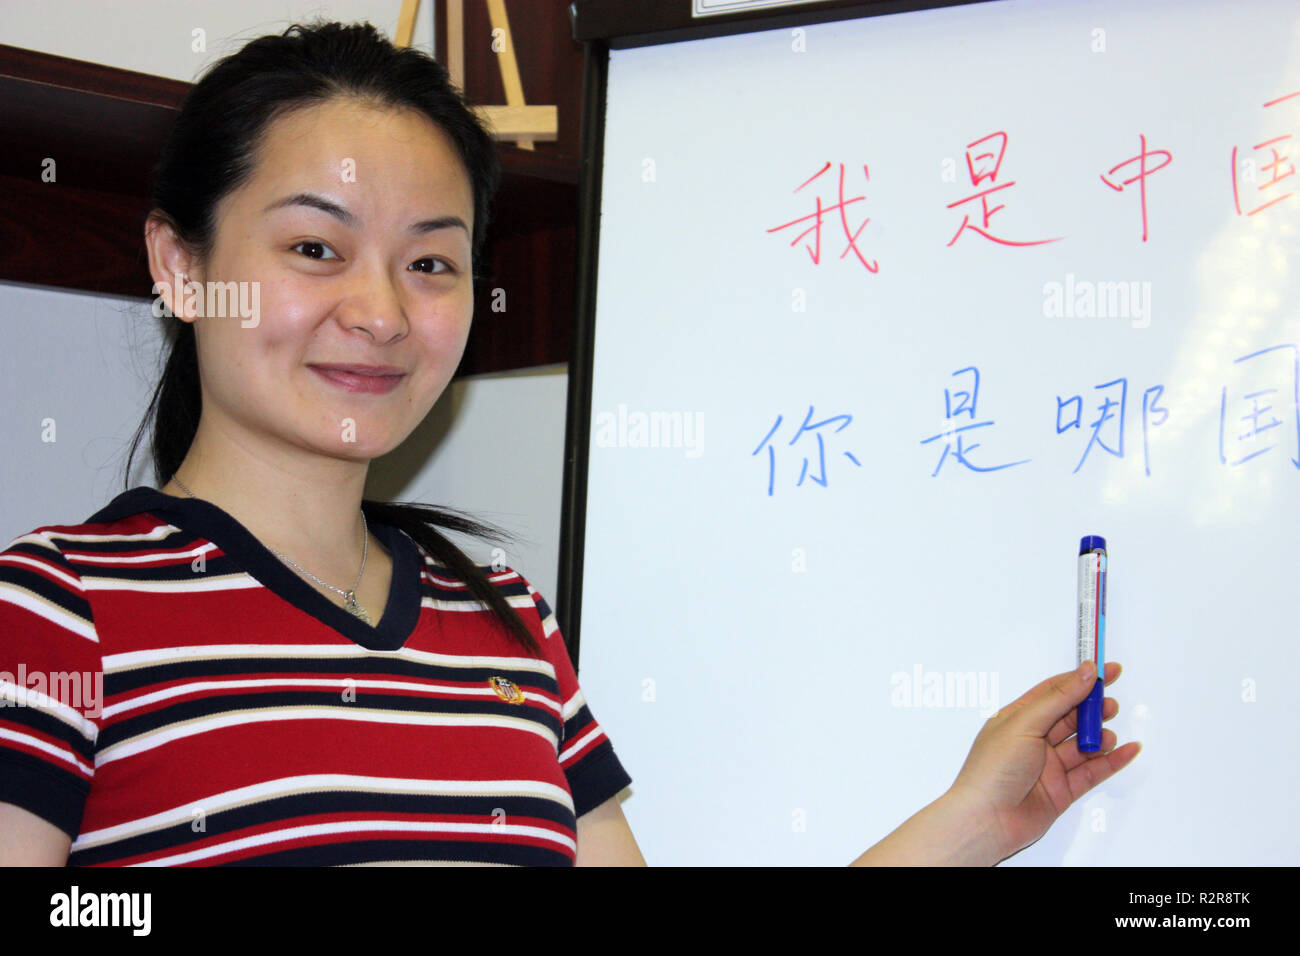 我是中国
你是哪国
alamy
alamy
alamy
alamy
alamy
Image ID: R2R8TK
www.alamy.com